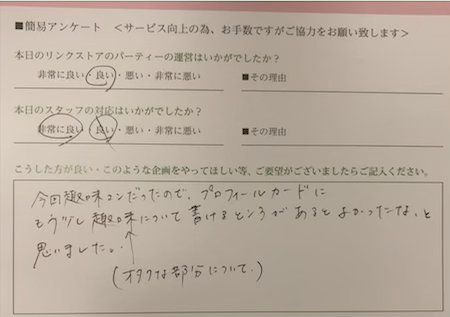 ■簡易アンケート ＜サービス向上の為、お手数ですがご協力をお願い致します＞
本日のリンクストアのパーティーの運営はいかがでしたか？
非常に良い・良い・悪い・非常に悪い ■その理由
本日のスタッフの対応はいかがでしたか？
非常に良い・良い・悪い・非常に悪い ■その理由
こうした方が良い・このような企画をやってほしい等、ご要望がございましたらご記入ください。
今回趣味コンだったので、プロフィールカードに
もう少し趣味について書けるところがあるとよかったな、と
思いました。
(オタクな部分について。)